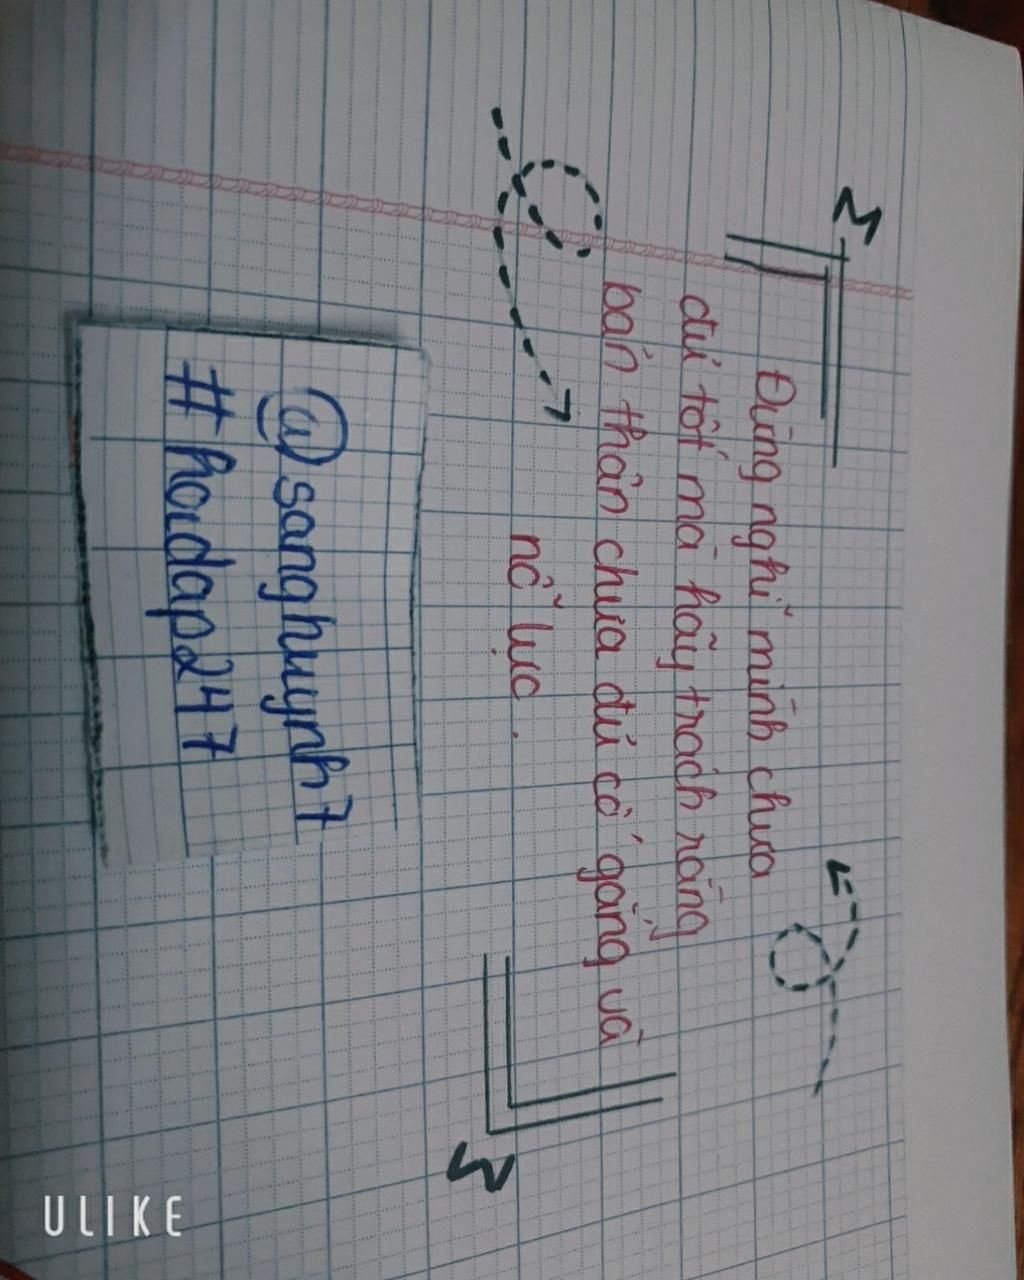 Đừng nghĩ mình chưa
đủ tốt mà hãy trách rằng
bản thân chưa đủ cố gắng và
nỗ lực.
@sanghuynh7
#hoidap247
ULIKE